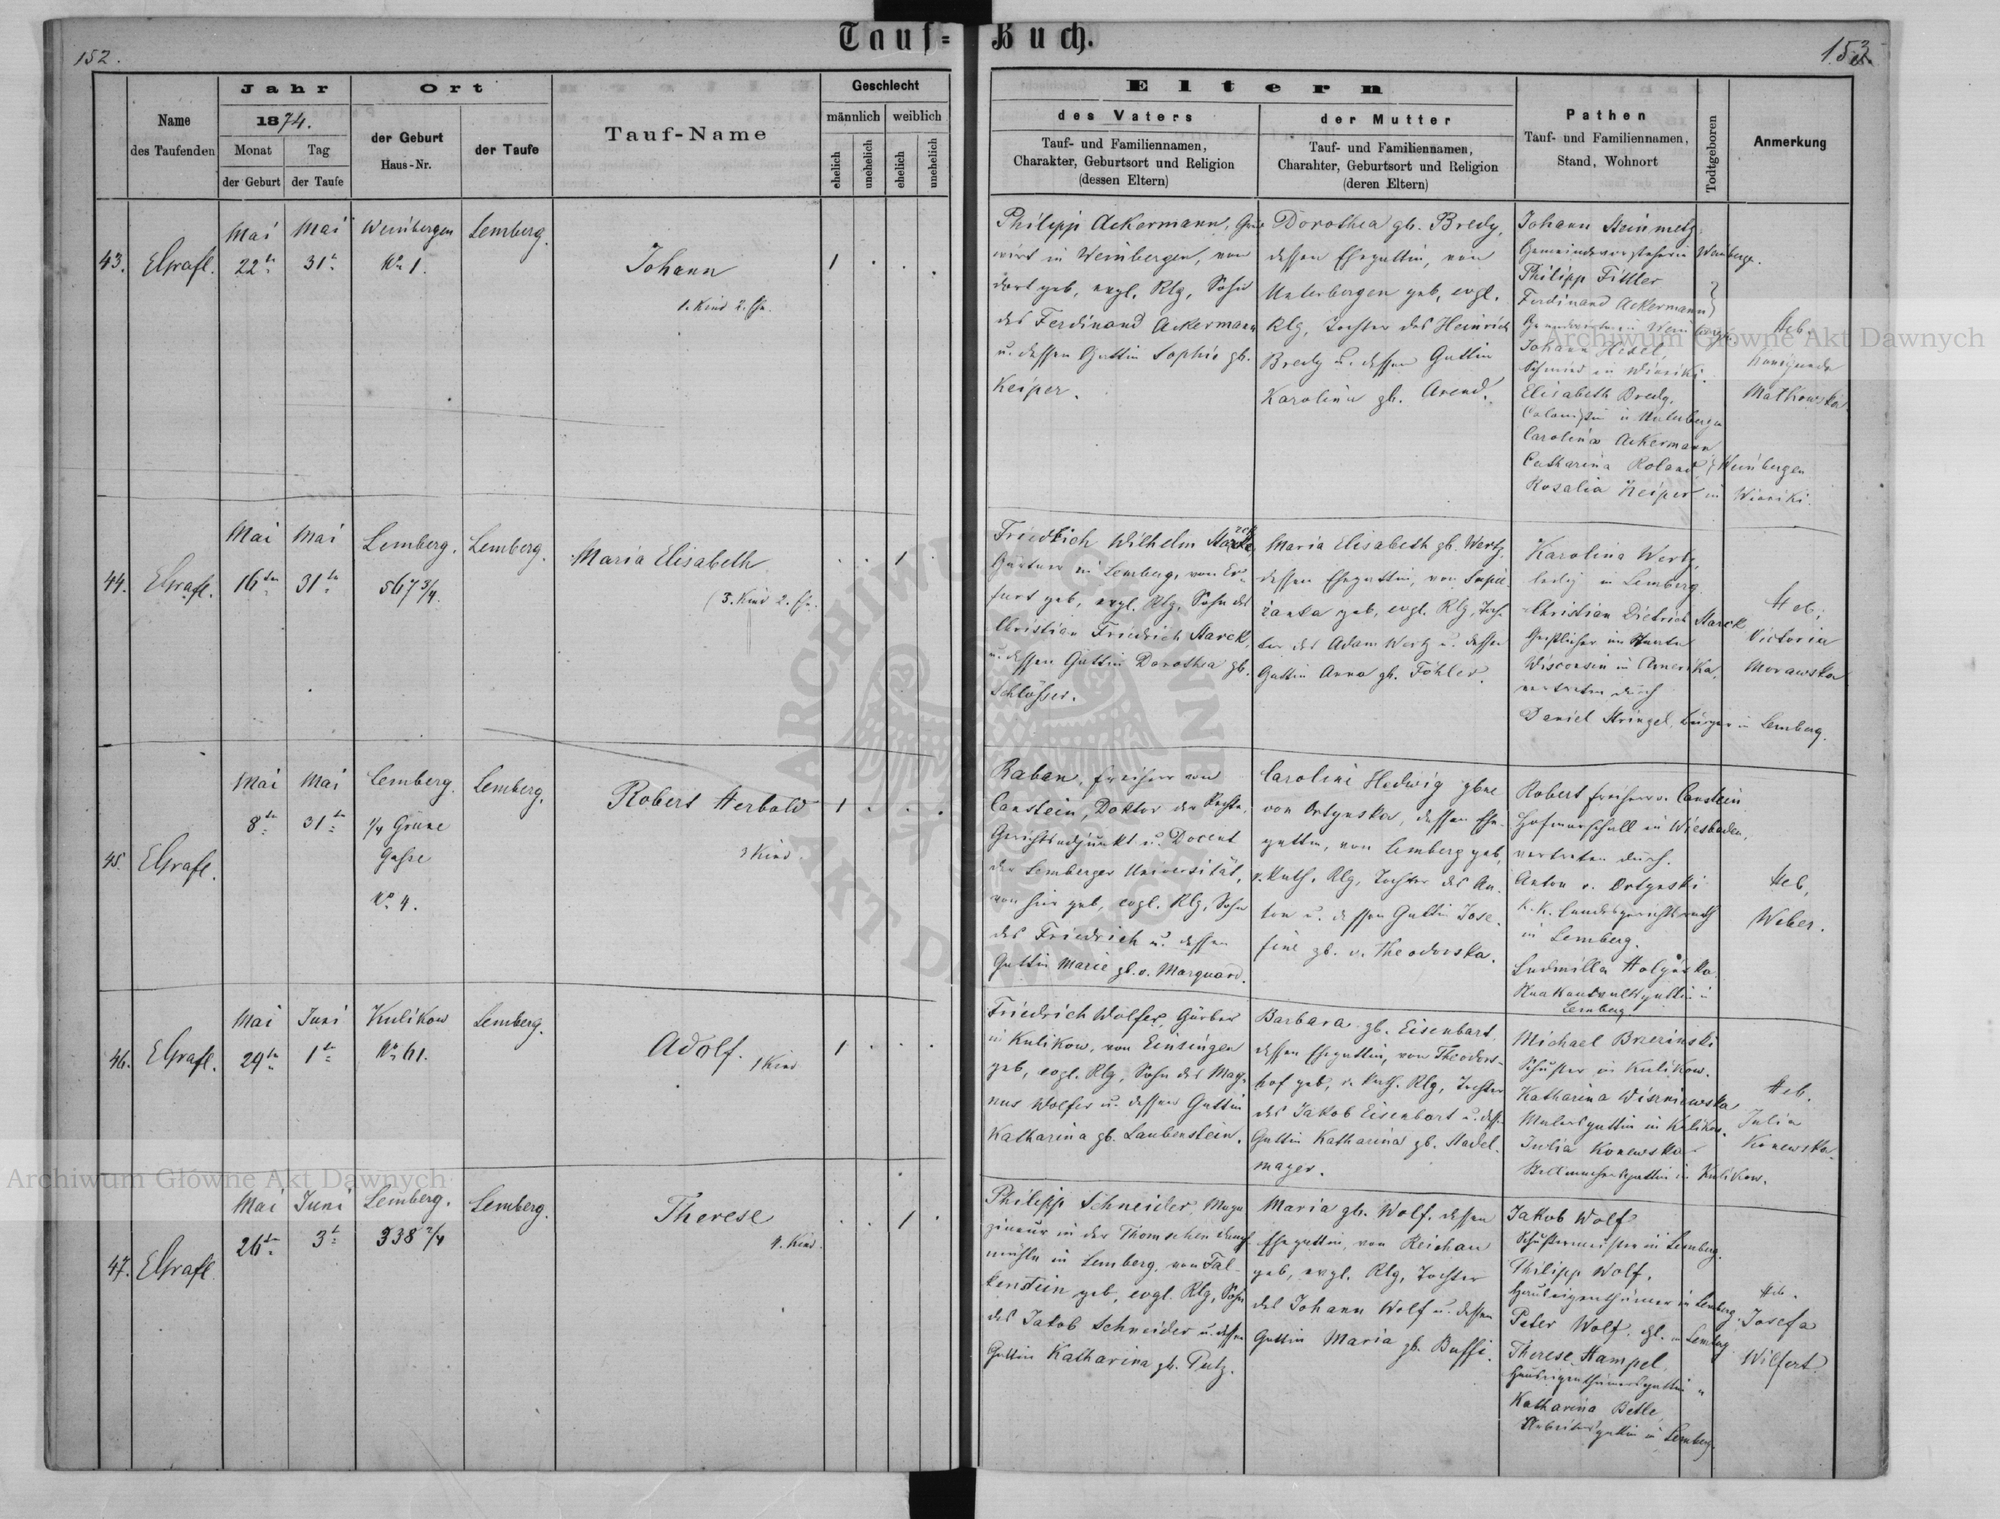 152.
Tauf-
Buch.
153
Name
des Taufenden
Jahr
1874.
Monat
der Geburt
Tag
der Taufe
Ort
der Geburt
Haus-Nr.
der Taufe
Tauf-Name
Geschlecht
männlich
weiblich
ehelich
unehelich
ehelich
unehelich
Eltern
des Vaters
Tauf- und Familiennamen,
Charakter, Geburtsort und Religion
(dessen Eltern)
der Mutter
Tauf- und Familiennamen,
Charahter, Geburtsort und Religion
(deren Eltern)
Pathen
Tauf- und Familiennamen,
Stand, Wohnort
Todtgeboren
Anmerkung
43.
Mai
22
Mai
31
Weinbergen
Nr 1.
Lemberg.
Johann
1. Kind 2. Ehe.
1
Philipp Ackermann,
wirt in Weinbergen, von
dort geb, evgl. Rlg, Sohn
des Ferdinand Ackermann
u. dessen Gattin Sophie gb.
Keiper.
Dorothea gb. Bredy,
dessen Ehegattin, von
Unterbergen geb, evgl.
Rlg, Tochter des Heinrich
Bredy u. dessen Gattin
Karolina gb. Arend.
Johann Steinmetz
Gemeindevorsteher in Weinberge.
Philipp Fittler
Ferdinand Ackermann
Johann Hesel,
Schmied in Winniki.
Elisabeth Bredy,
Colonistin in Unterbergen
Carolina Ackermann
Catharina Roland Weinbergen
Rosalia Keiper in Winniki.
Heb.
Mathowska
44.
Mai
16
Mai
31
Lemberg.
567 3/4.
Lemberg.
Maria Elisabeth
3. Kind 2. Ehe.
1
Friedrich Wilhelm
Gärtner in Lemberg, von Er-
furt geb, evgl. Rlg, Sohn des
Christian Friedrich Starck
u. dessen Gattin Dorothea gb.
Schlösser.
Maria Elisabeth gb. Wertz,
dessen Ehegattin, von Sapie-
zanka geb, evgl. Rlg, Toch-
ter des Adam Wertz u. dessen
Gattin Anna gb. Föhler.
Karolina Wertz,
ledig in Lemberg.
Christian Dietrich Starck
Geistlicher im Staate
Wisconsin in Amerika,
vertreten durch
Daniel Stringel, Bürger in Lemberg.
Heb.
Victoria
Morawska
45.
Mai
8
Mai
31
Lemberg.
1/4 Grüne
Gasse
Nº 4.
Lemberg.
Robert Herbold
3 Kind.
1
Raban, Freiherr von
Canstein, Doktor der Rechte,
Gerichtsadjunkt u. Docent
der Lemberger Universität,
von hier geb, evgl. Rlg, Sohn
des Friedrich u. dessen
Gattin Marie gb. v. Marquard.
Caroline Hedwig gbne
von Ortynska, dessen Ehe-
gattin, von Lemberg geb,
r. Kath. Rlg, Tochter des An-
ton u. dessen Gattin Jose-
fine gb. v. Theodorska.
Robert Freiherr v. Canstein
Hofmarschall in Wiesbaden,
vertreten durch.
Anton v. Ortynski
k. k. Landesgerichtsrath
in Lemberg.
Ludmilla
in
Lemberg
Heb,
Weber.
46.
Mai
29
Juni
1
Kulikow
Nr 61.
Lemberg.
Adolf.
1 Kind
1
Friedrich Wolfer, Gärber
in Kulikow, von Einsingen
geb, evgl. Rlg, Sohn des Mag-
nus Wolfer u. dessen Gattin
Katharina gb. Laubenstein.
Barbara gb. Eisenbart
dessen Ehegattin, von Theodors-
hof geb, r. Kath. Rlg, Tochter
des Jakob Eisenbart u. dessen
Gattin Katharina gb. Stadel-
mayer.
Michael Brzezinski
Schuster in Kulikow.
Katharina Wiszniewska
Malersgattin in Kulikow.
Julia Konewska
in Kulikow.
Heb.
Julia
Konewska.
47.
Mai
26
Juni
3
Lemberg.
338 2/4
Lemberg.
Therese
4. Kind.
1
Philipp Schneider, Maga-
zineur in der Thomschen Dampf
mühle in Lemberg, von Fal-
kenstein geb, evgl. Rlg, Sohn
des Jakob Schneider u. dessen
Gattin Katharina gb. Putz.
Maria gb. Wolf, dessen
Ehegattin, von Reichau
geb, evgl. Rlg, Tochter
des Johann Wolf u. dessen
Gattin Maria gb. Buffi.
Jakob Wolf
Schustermeister in Lemberg.
Philipp Wolf,
Hauseigenthümer in Lemberg
Peter Wolf, in Lemberg
Therese Hampel,
Hauseigenthümersgattin
Katharina Betle
Arbeitersgattin in Lemberg.
Heb.
Josefa
Wilfert.
Archiwum Główne Akt Dawnych
Archiwum Główne Akt Dawnych